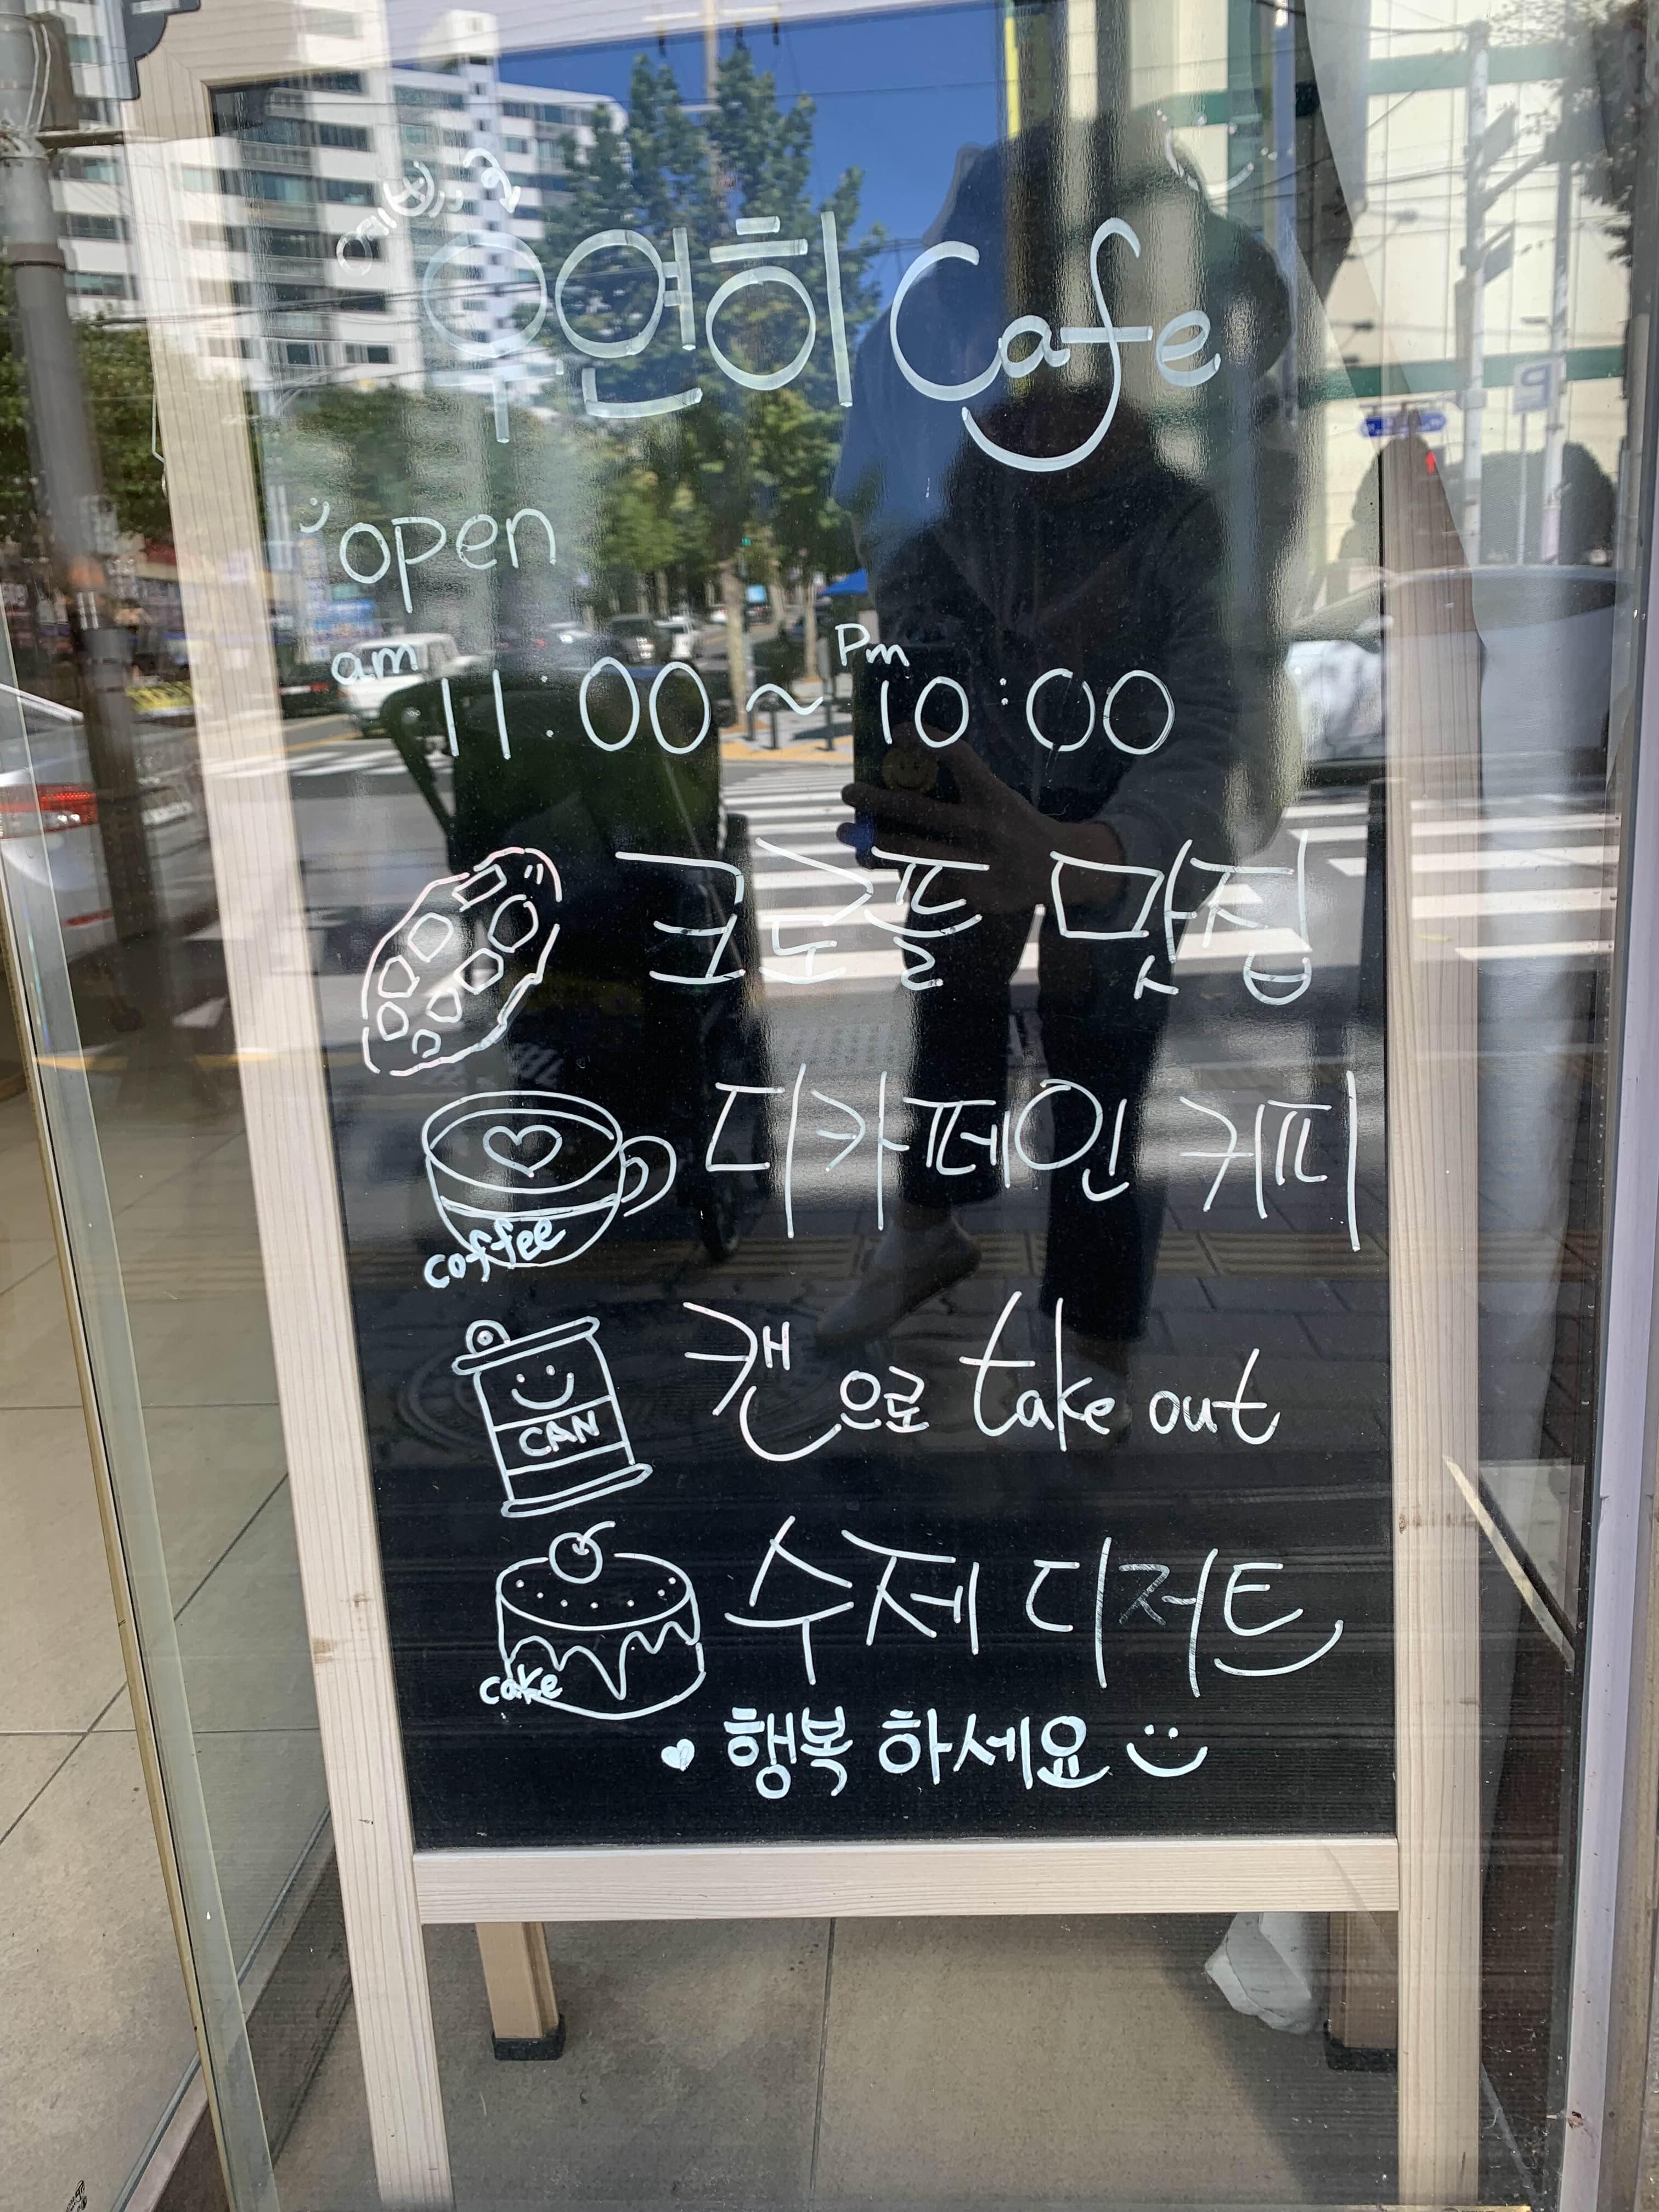 예쁜
우연히 Cafe
open
am 11:00 ~ pm 10:00
크로플 맛집
디카페인 커피
coffee
캔으로 take out
CAN
수제 디저트
cake
행복 하세요